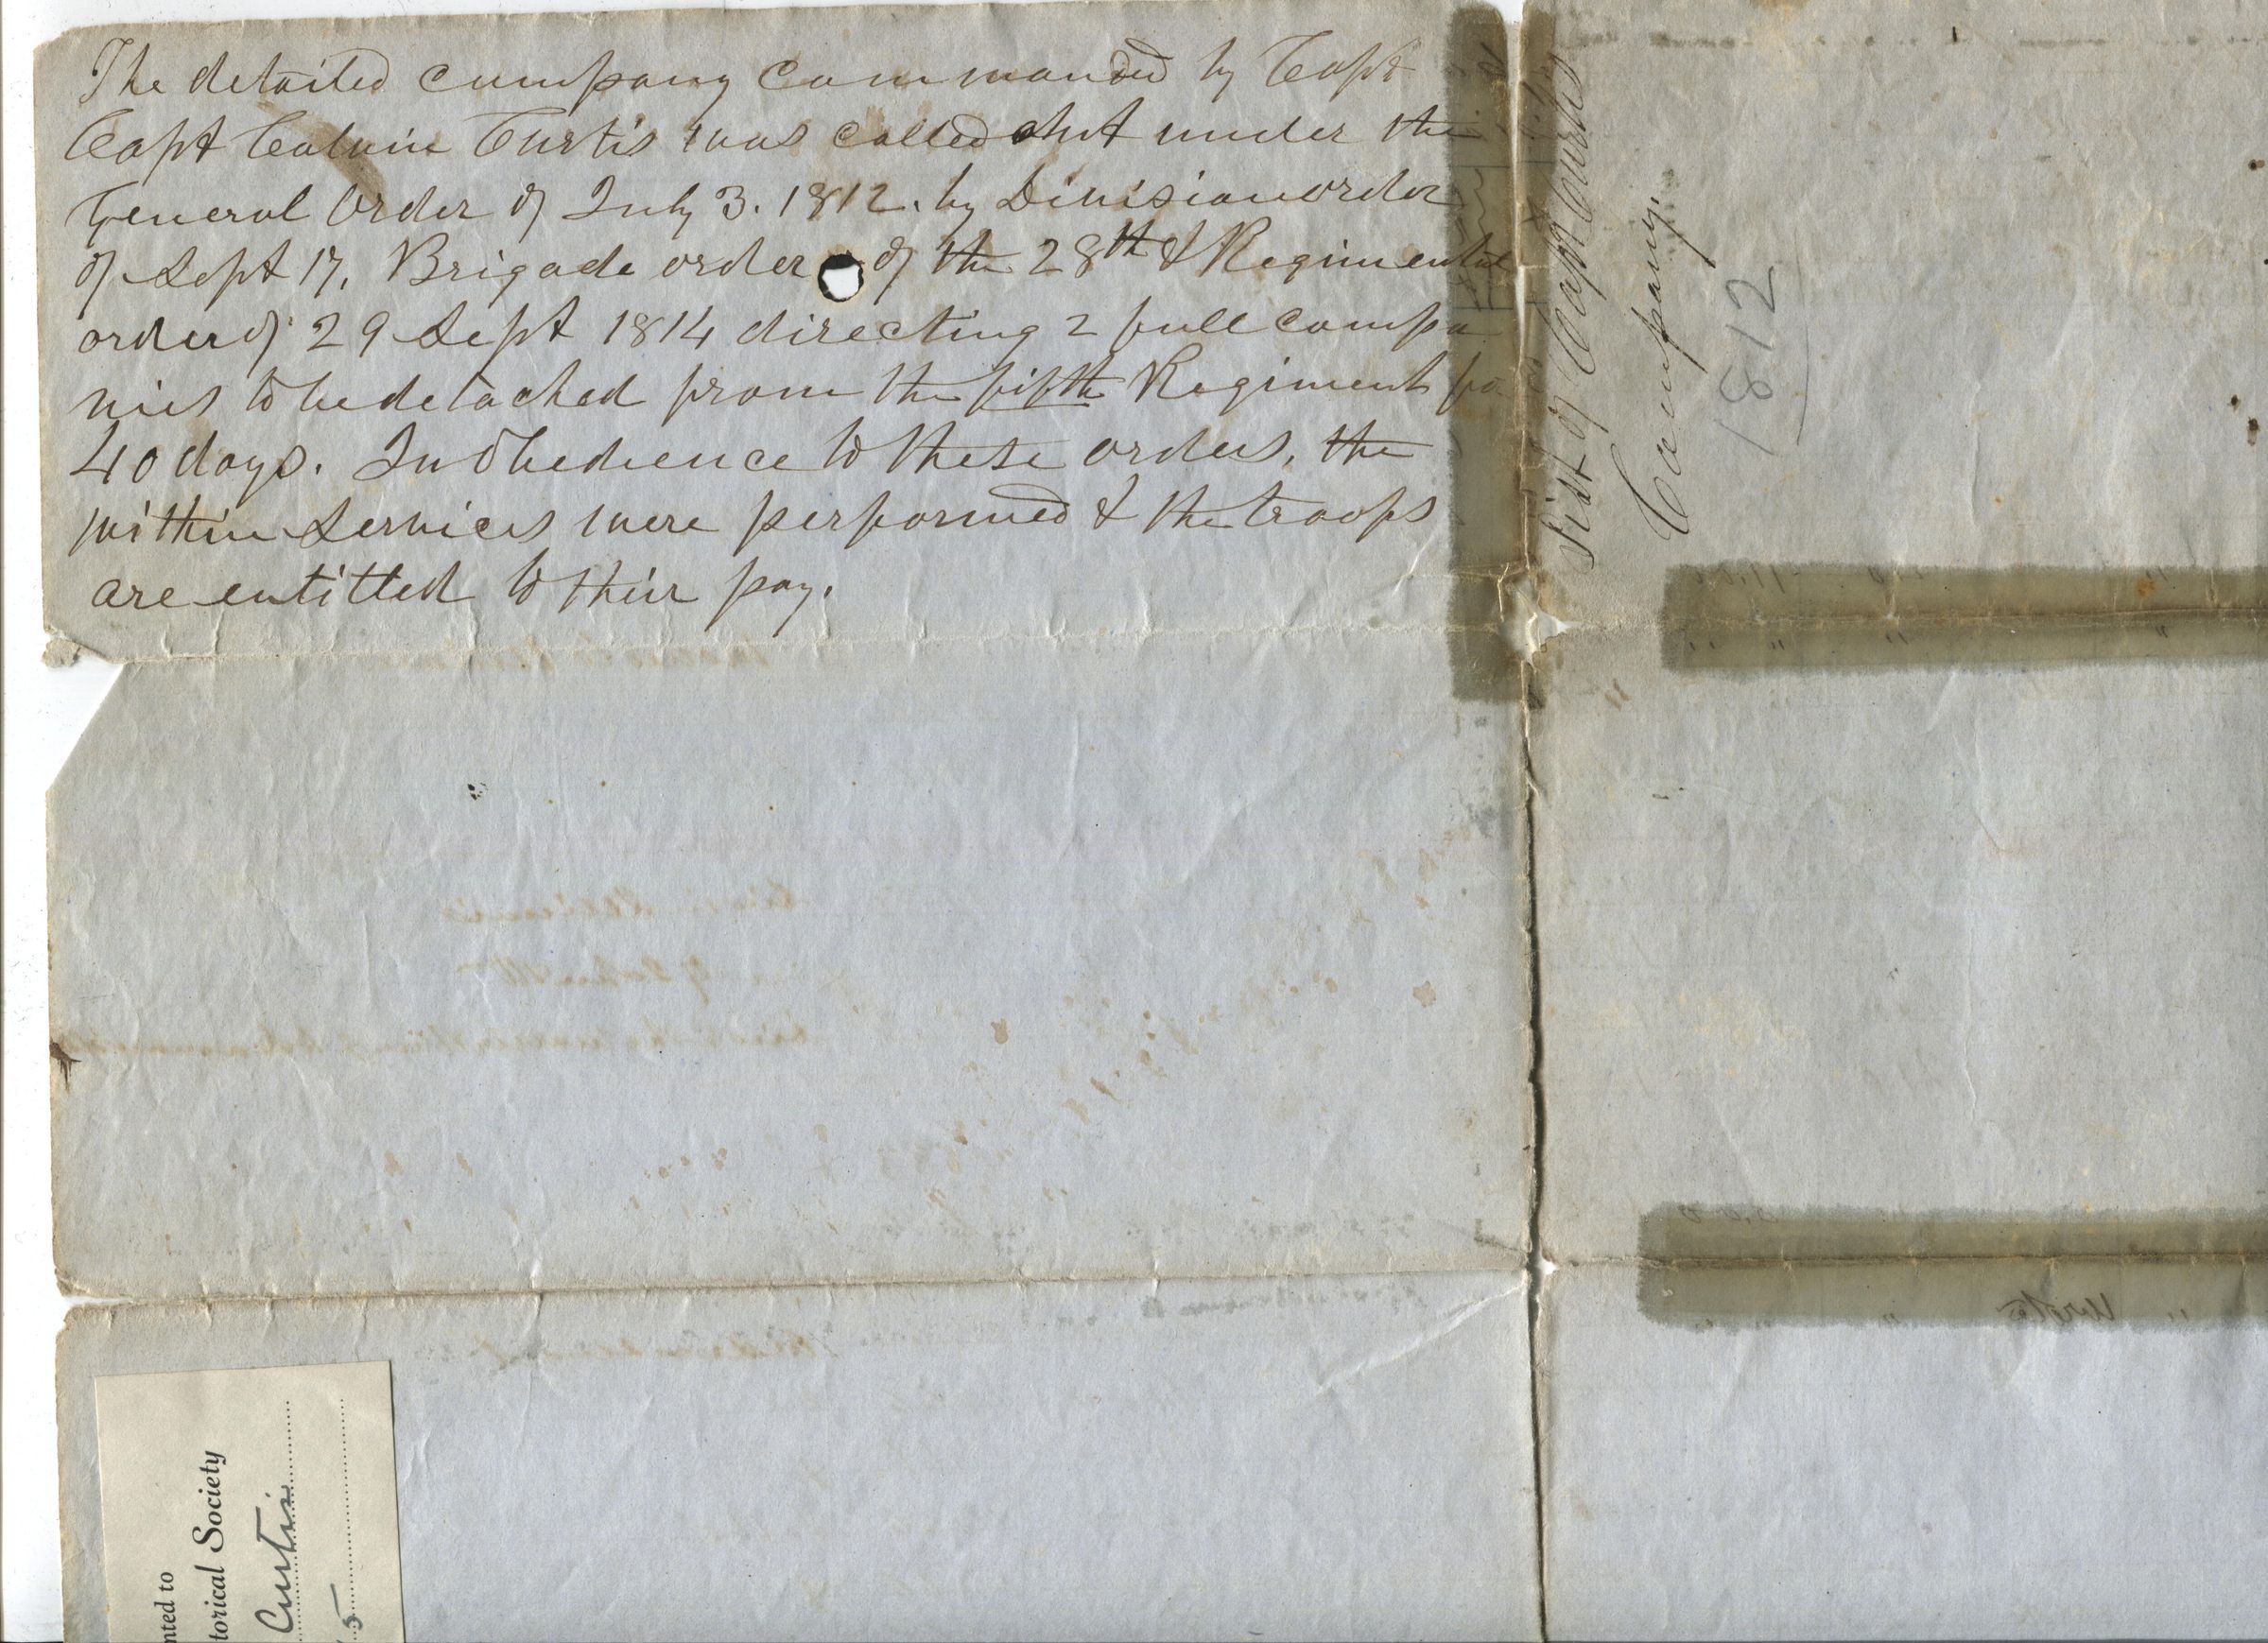 The detailed company commanded by Capt
Capt Calvin Curtis was called out under the
General Order of July 3. 1812. by Division order
of Sept 17, Brigade order of the 28th & Regimental
order of 29 Sept 1814 directing 2 full compa
nies to be detached from the fifth Regiment fo
40 days. In obedience to these orders, the
within services were performed & the troops
are entitled to their pay.
List of Capt Curtis
Company.
1812
nted to
torical Society
Curtis
5